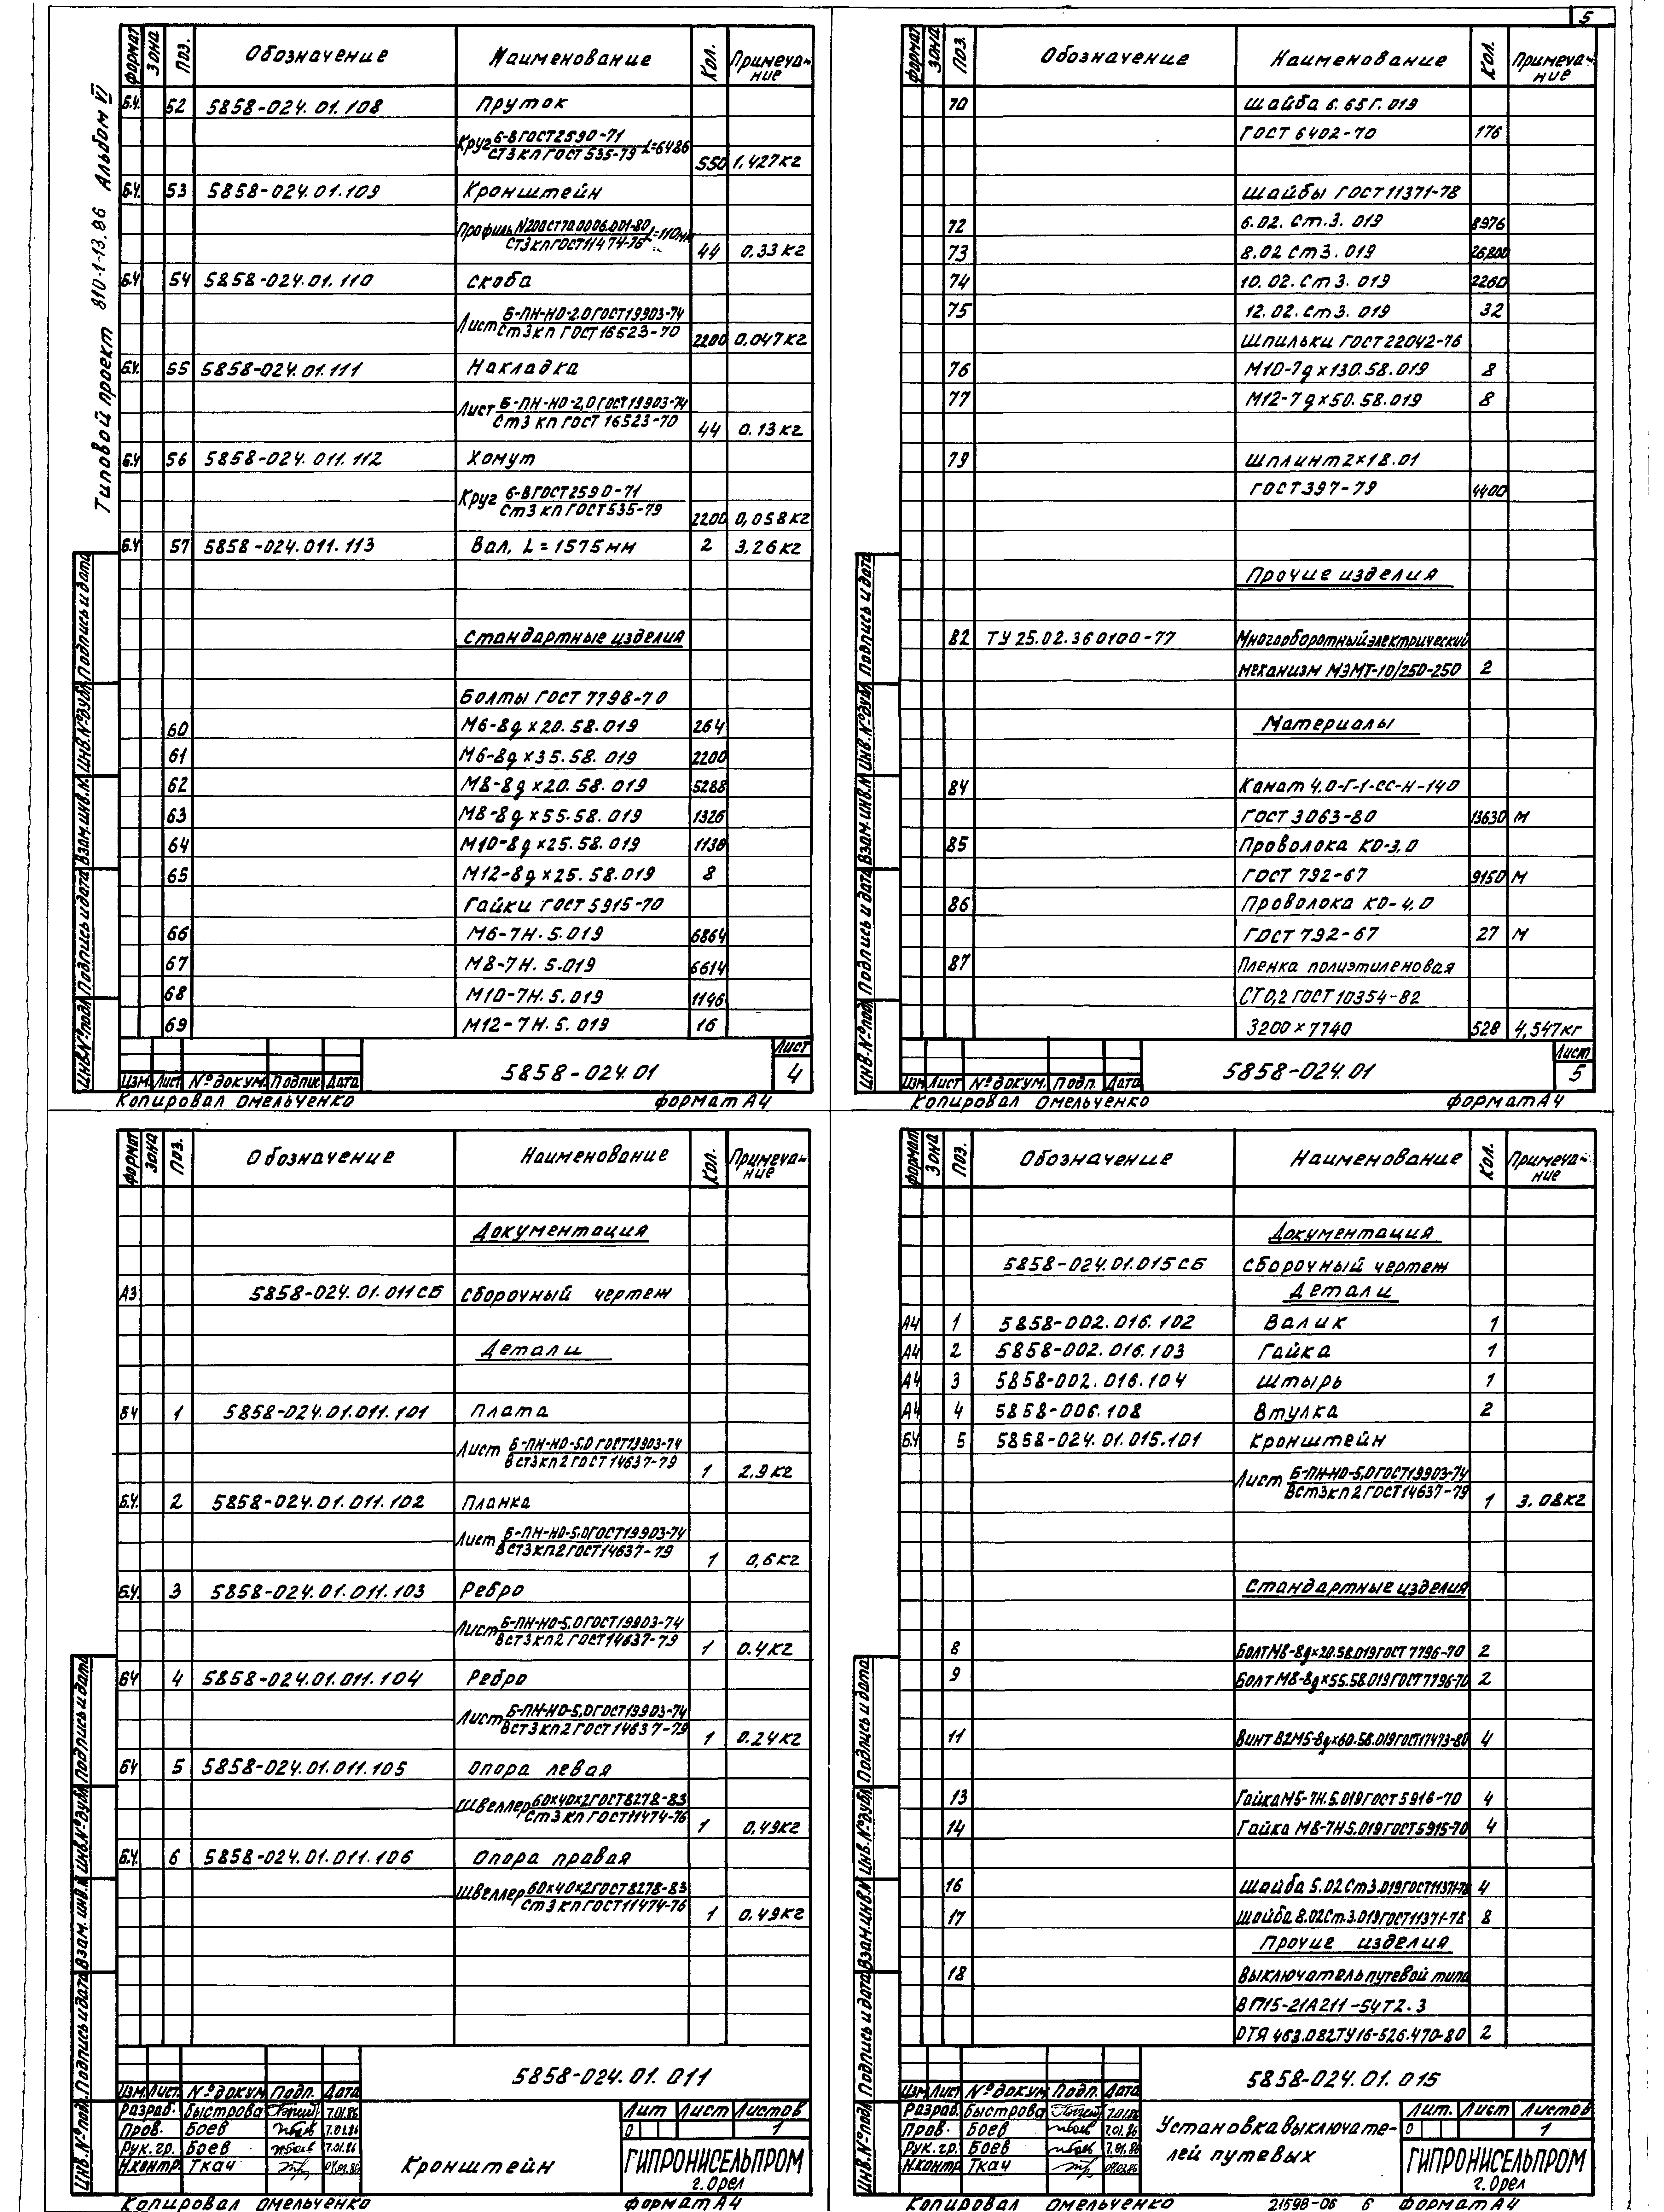 5
Типовой проект 810-1-13.86 Альбом VI
Формат Зона Поз. Обозначение Наименование Кол. Примечание
Б.Ч. 52 5858-024.01.108 Пруток
Круг 6-В ГОСТ 2590-71
Ст3кп ГОСТ 535-79 L=6486
550 1.427кг
Б.Ч. 53 5858-024.01.109 Кронштейн
Ст3кп ГОСТ 11474-76 L=110мм
44 0.33кг
Б.Ч 54 5858-024.01.110 Скоба
Лист Б-ПН-НО-2.0 ГОСТ 19903-74
Ст3кп ГОСТ 16523-70
2200 0,047кг
Б.Ч. 55 5858-024.01.111 Накладка
Лист Б-ПН-НО-2,0 ГОСТ 19903-74
Ст3кп ГОСТ 16523-70
44 0.13кг
Б.Ч 56 5858-024.011.112 Хомут
Круг 6-В ГОСТ 2590-71
Ст3кп ГОСТ 535-79
2200 0,058кг
Б.Ч 57 5858-024.011.113 Вал, L=1575мм 2 3.26кг
Стандартные изделия
Болты ГОСТ 7798-70
60 М6-8gх20.58.019 264
61 М6-8gх35.58.019 2200
62 М8-8gх20.58.019 5288
63 М8-8gх55.58.019 1326
64 М10-8gх25.58.019 1130
65 М12-8gх25.58.019 8
Гайки ГОСТ 5915-70
66 М6-7Н.5.019 6864
67 М8-7Н.5.019 6614
68 М10-7Н.5.019 1146
69 М12-7Н.5.019 16
Инв.№подл. Подпись и дата Взам.инв.№ Инв.№дубл. Подпись и дата
Изм. Лист №докум. Подпис. Дата
5858-024.01
Лист 4
Копировал Омельченко Формат А4
Формат Зона Поз. Обозначение Наименование Кол. Примечание
70 Шайба 6.65Г.019
ГОСТ 6402-70 176
Шайбы ГОСТ 11371-78
72 6.02.Ст.3.019 8976
73 8.02 Ст3.019 26800
74 10.02.Ст3.019 2260
75 12.02.Ст3.019 32
Шпильки ГОСТ 22042-76
76 М10-7gх130.58.019 8
77 М12-7gх50.58.019 8
79 Шплинт 2х18.01
ГОСТ 397-79 4400
Прочие изделия
82 ТУ 25.02.360100-77 Многооборотный электрический
механизм МЭМТ-10/250-250 2
Материалы
84 Канат 4,0-Г-1-СС-Н-140
ГОСТ 3063-80 13630 М
85 Проволока КО-3,0
ГОСТ 792-67 9150 М
86 Проволока КО-4,0
ГОСТ 792-67 27 М
87 Пленка полиэтиленовая
СТ 0,2 ГОСТ 10354-82
3200х7740 528 4,547кг
Инв.№подл. Подпись и дата Взам.инв.№ Инв.№дубл. Подпись и дата
Изм Лист №докум. Подп. Дата
5858-024.01
Лист 5
Копировал Омельченко Формат А4
Формат Зона Поз. Обозначение Наименование Кол. Примечание
Документация
А3 5858-024.01.011СБ Сборочный чертеж
Детали
БЧ 1 5858-024.01.011.101 Плата
Лист Б-ПН-НО-5,0 ГОСТ 19903-74
Вст3кп2 ГОСТ 14637-79
1 2,9кг
Б.Ч. 2 5858-024.01.011.102 Планка
Лист Б-ПН-НО-5,0 ГОСТ 19903-74
Вст3кп2 ГОСТ 14637-79
1 0,6кг
Б.Ч. 3 5858-024.01.011.103 Ребро
Лист Б-ПН-НО-5,0 ГОСТ 19903-74
Вст3кп2 ГОСТ 14637-79
1 0.4кг
БЧ 4 5858-024.01.011.104 Ребро
Лист Б-ПН-НО-5,0 ГОСТ 19903-74
Вст3кп2 ГОСТ 14637-79
1 0.24кг
БЧ 5 5858-024.01.011.105 Опора левая
Швеллер 60х40х2 ГОСТ 8278-83
Ст3кп ГОСТ 11474-76
1 0,49кг
Б.Ч. 6 5858-024.01.011.106 Опора правая
Швеллер 60х40х2 ГОСТ 8278-83
Ст3кп ГОСТ 11474-76
1 0.49кг
Инв.№подл. Подпись и дата Взам.инв.№ Инв.№дубл. Подпись и дата
5858-024.01.011
Изм. Лист. №докум Подп. Дата
Разраб. Быстрова 7.01.86
Пров. Боев 7.01.86
Рук.гр. Боев 7.01.86
Н.контр. Ткач
Кронштейн
Лит Лист Листов
0 1
ГИПРОНИСЕЛЬПРОМ
г.Орел
Копировал Омельченко Формат А4
Формат Зона Поз. Обозначение Наименование Кол. Примечание
Документация
5858-024.01.015СБ Сборочный чертеж
Детали
А4 1 5858-002.016.102 Валик 1
А4 2 5858-002.016.103 Гайка 1
А4 3 5858-002.016.104 Штырь 1
А4 4 5858-006.108 Втулка 2
Б.Ч 5 5858-024.01.015.101 Кронштейн
Лист Б-ПН-НО-5,0 ГОСТ 19903-74
Вст3кп2 ГОСТ 14637-79
1 3.08кг
Стандартные изделия
8 Болт М8-8gх20.58.019 ГОСТ 7796-70 2
9 Болт М8-8gх55.58.019 ГОСТ 7796-70 2
11 Винт В2М5-8gх60.58.019 ГОСТ 17473-80 4
13 Гайка М5-7Н.5.019 ГОСТ 5916-70 4
14 Гайка М8-7Н5.019 ГОСТ 5915-70 4
16 Шайба 5.02Ст3.019 ГОСТ 11371-78 4
17 Шайба 8.02Ст.3.019 ГОСТ 11371-78 8
Прочие изделия
18 Выключатель путевой типа
ВП15-21А211-54Т2.3
ОТЯ 463.082ТУ16-526.470-80 2
Инв.№подл. Подпись и дата Взам.инв.№ Инв.№дубл. Подпись и дата
5858-024.01.015
Изм Лист №докум Подп. Дата
Разраб. Быстрова 7.01.86
Пров. Боев 7.01.86
Рук.гр. Боев 7.01.86
Н.контр Ткач
Установка выключате-
лей путевых
Лит. Лист Листов
0 1
ГИПРОНИСЕЛЬПРОМ
г.Орел
Копировал Омельченко 21598-06 6 Формат А4